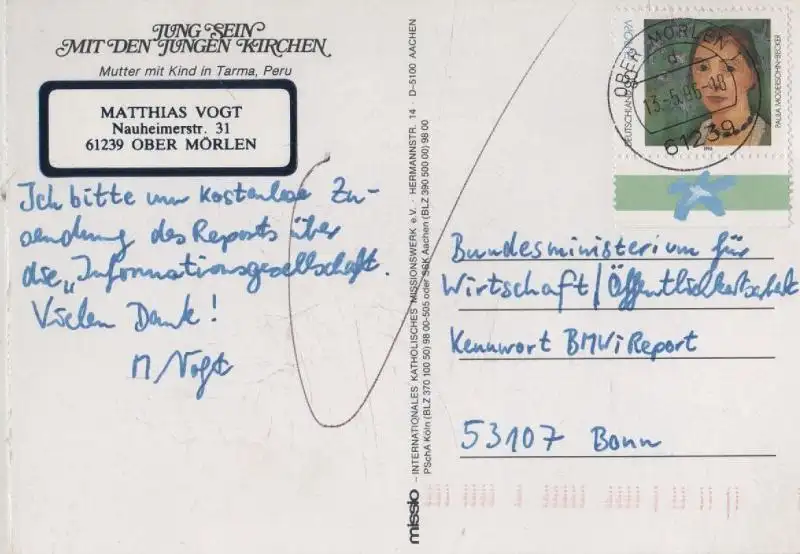 JUNG SEIN
MIT DEN JUNGEN KIRCHEN
Mutter mit Kind in Tarma, Peru
MATTHIAS VOGT
Nauheimerstr. 31
61239 OBER MÖRLEN
Ich bitte um kostenlose Zu-
sendung des Reports über
die „Informationsgesellschaft.
Vielen Dank!
M/Vogt
missio – INTERNATIONALES KATHOLISCHES MISSIONSWERK e.V. · HERMANNSTR. 14 · D–5100 AACHEN
PSchA Köln (BLZ 370 100 50) 98 00-505 oder SSK Aachen (BLZ 390 500 00) 98 00
PAULA MODERSOHN-BECKER
1996
OBER MÖRLEN 1
a
13.-5.96-18
61239
Bundesministerium für
Wirtschaft/Öffentlichkeitsarbeit
Kennwort BMWi Report
53107 Bonn